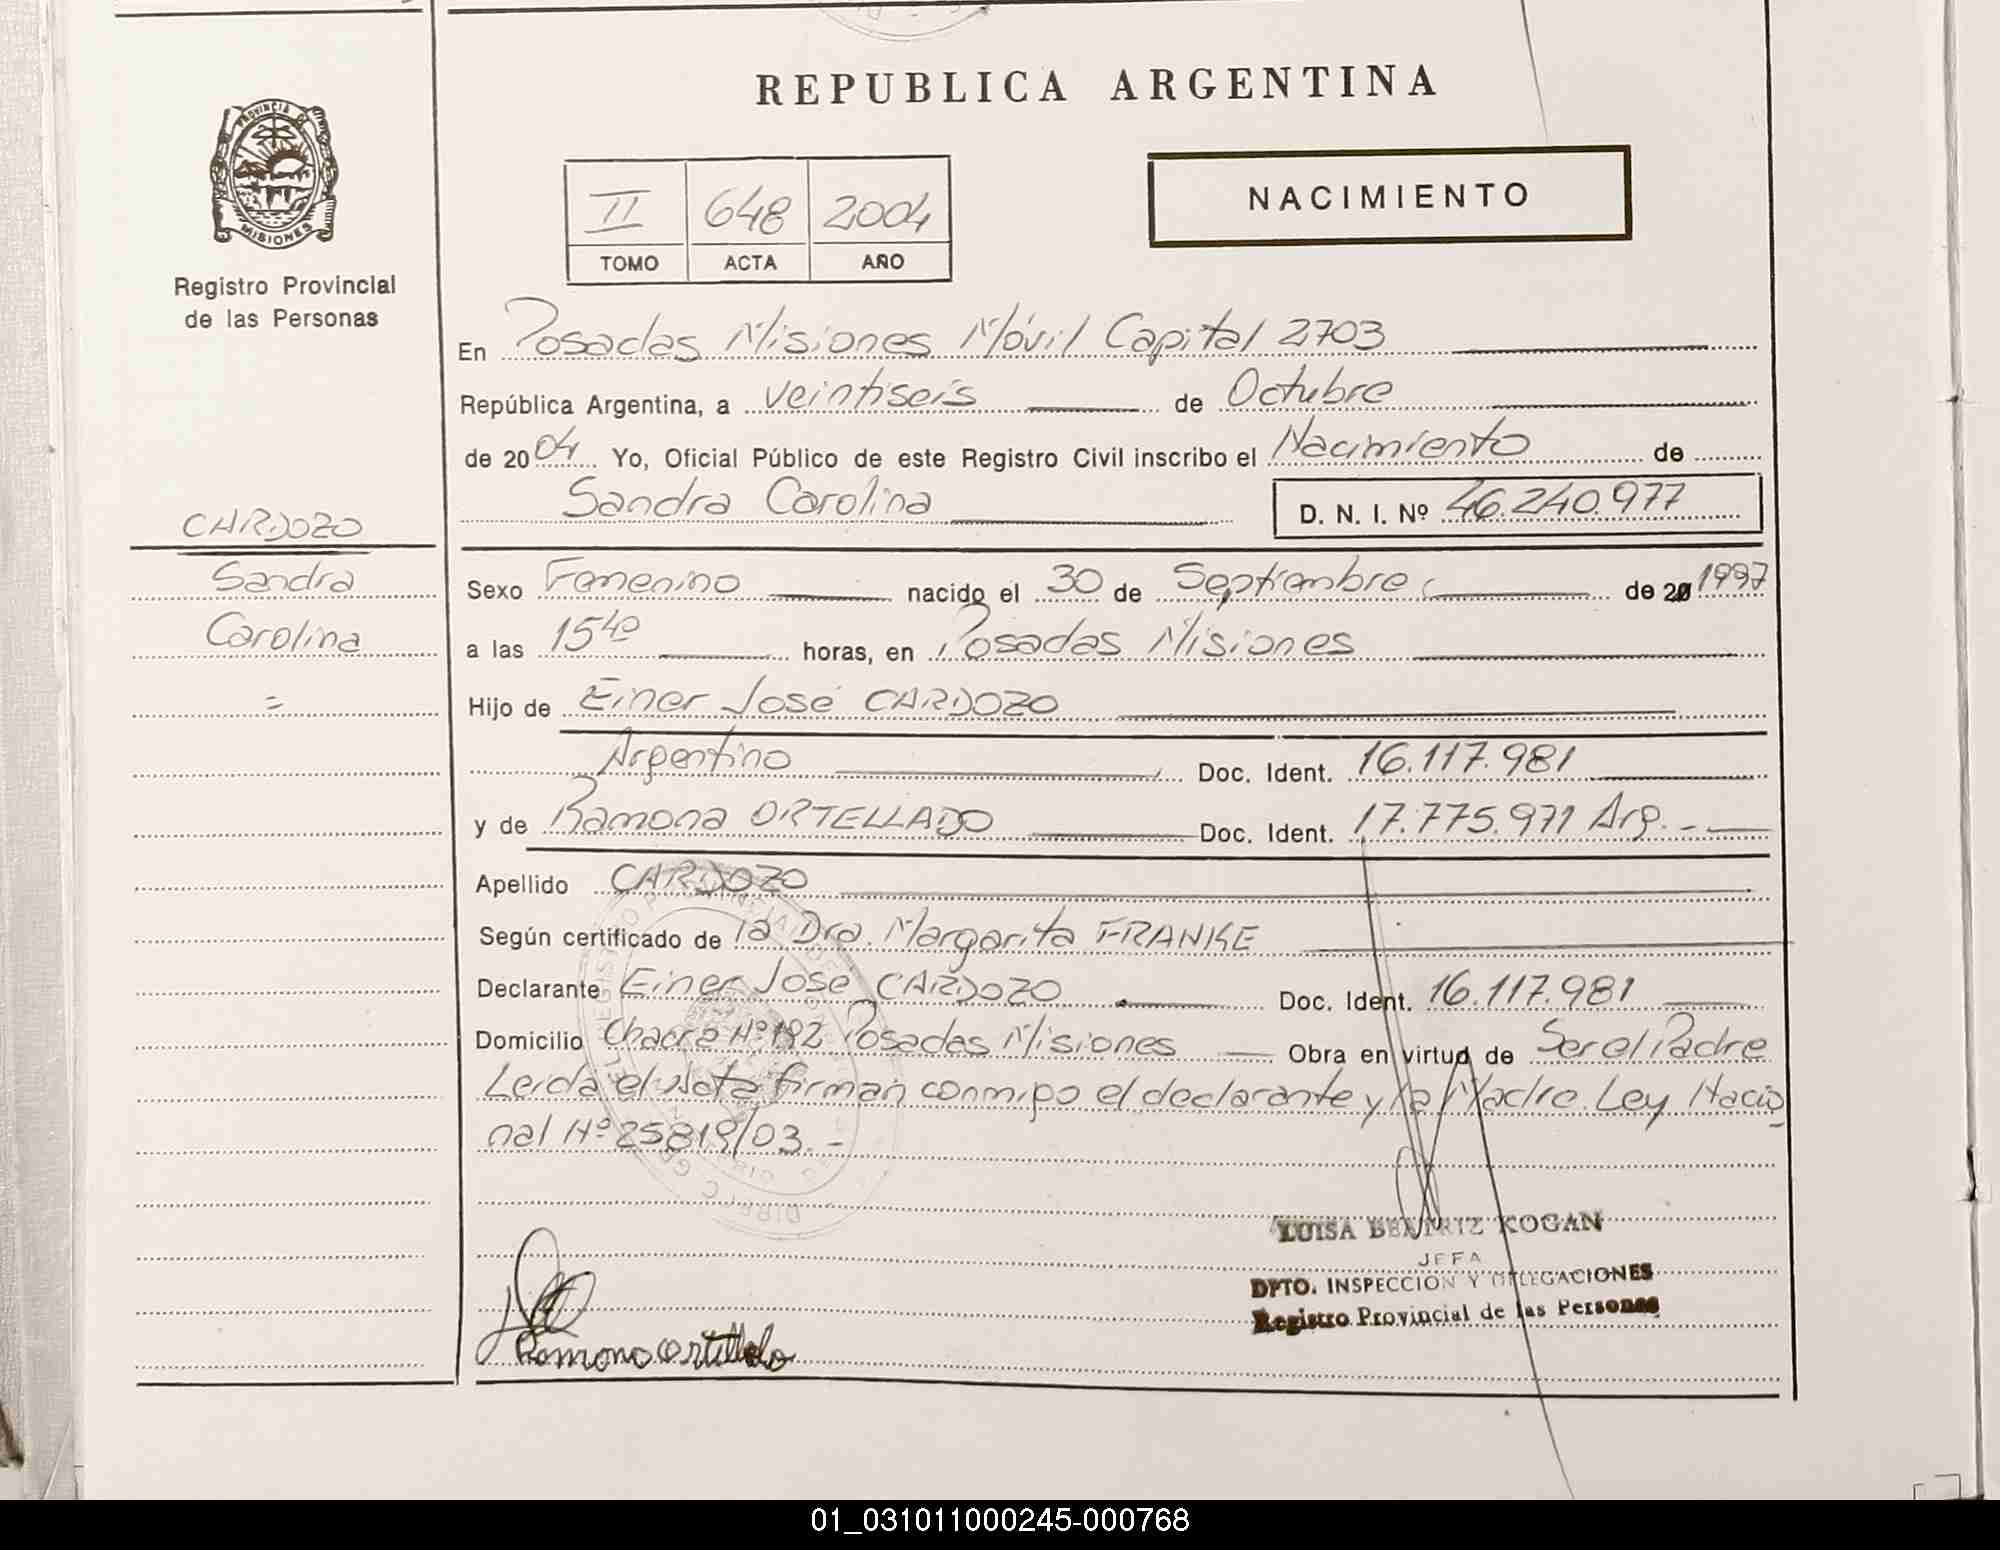 REPUBLICA ARGENTINA
PROVINCIA DE
MISIONES
Registro Provincial
de las Personas
II 648 2004
TOMO ACTA AÑO
NACIMIENTO
En Posadas Misiones Móvil Capital 2703
República Argentina, a veintiseis de Octubre
de 2004 Yo, Oficial Público de este Registro Civil inscribo el Nacimiento de
Sandra Carolina D. N. I. Nº 46.240.977
CARDOZO
Sandra
Carolina
=
Sexo Femenino nacido el 30 de Septiembre de 20 1997
a las 15 40 horas, en Posadas Misiones
Hijo de Einer José CARDOZO
Argentino Doc. Ident. 16.117.981
y de Ramona ORTELLADO Doc. Ident. 17.775.971 Arg. -
Apellido CARDOZO
Según certificado de la Dra. Margarita FRANKE
Declarante Einer José CARDOZO Doc. Ident. 16.117.981
Domicilio Chacra Nº 192 Posadas Misiones Obra en virtud de Ser el Padre
Leida el Acta firman conmigo el declarante y la Madre. Ley Nacio
nal Nº 25819/03.-
LUISA BEATRIZ KOGAN
JEFA
DPTO. INSPECCION Y DELEGACIONES
Registro Provincial de las Personas
Ramona Ortellado
01_031011000245-000768